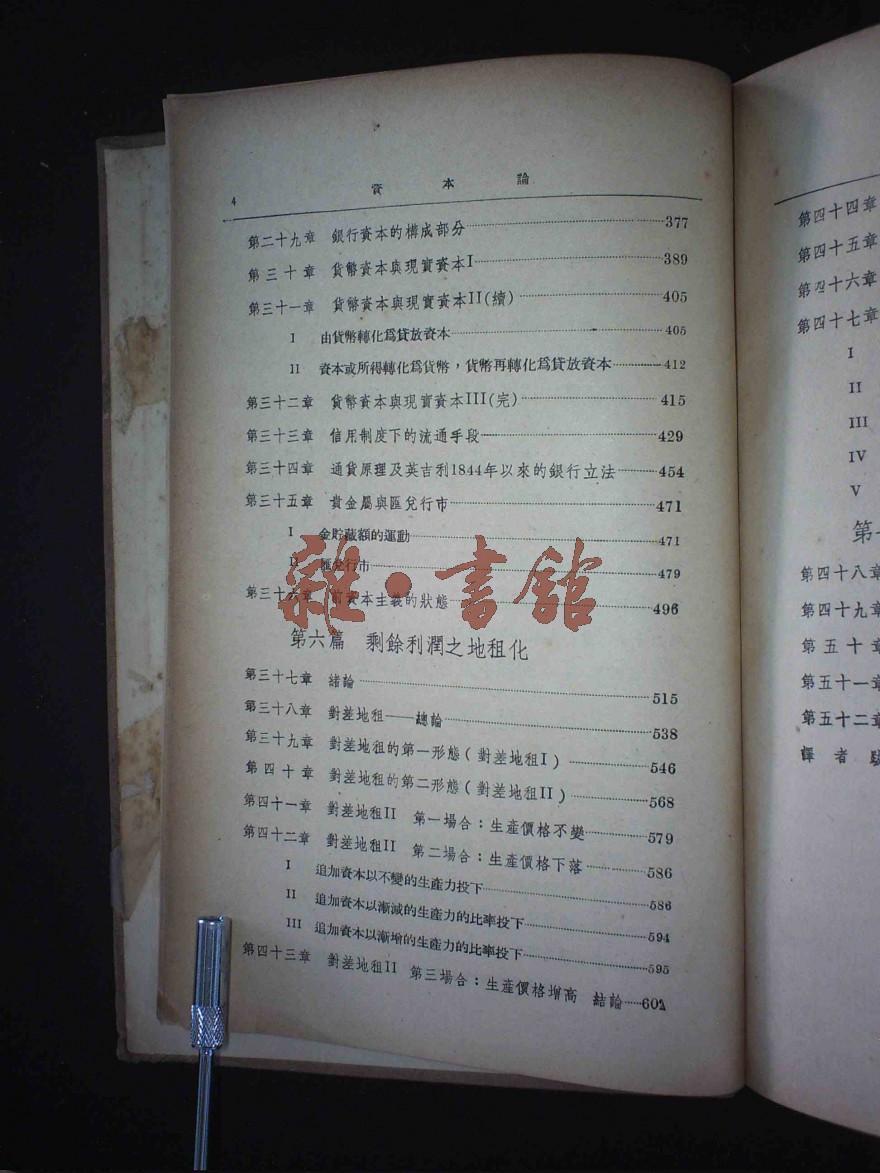 4 資本論
第二十九章 銀行資本的構成部分 377
第三十章 貨幣資本與現實資本I 389
第三十一章 貨幣資本與現實資本II(續) 405
I 由貨幣轉化爲貸放資本 405
II 資本或所得轉化爲貨幣，貨幣再轉化爲貸放資本 412
第三十二章 貨幣資本與現實資本III(完) 415
第三十三章 信用制度下的流通手段 429
第三十四章 通貨原理及英吉利1844年以來的銀行立法 454
第三十五章 貴金屬與匯兌行市 471
I 金貯藏額的運動 471
II 匯兌行市 479
第三十六章 前資本主義的狀態 496
雜·書館
第六篇 剩餘利潤之地租化
第三十七章 緒論 515
第三十八章 對差地租——總論 538
第三十九章 對差地租的第一形態(對差地租I) 546
第四十章 對差地租的第二形態(對差地租II) 568
第四十一章 對差地租II 第一場合：生產價格不變 579
第四十二章 對差地租II 第二場合：生產價格下落 586
I 追加資本以不變的生產力投下 586
II 追加資本以漸減的生產力的比率投下 594
III 追加資本以漸增的生產力的比率投下 595
第四十三章 對差地租II 第三場合：生產價格增高 結論
第四十四章
第四十五章
第四十六章
第四十七章
I
II
III
IV
V
第
第四十八章
第四十九章
第五十章
第五十一章
第五十二章
譯者